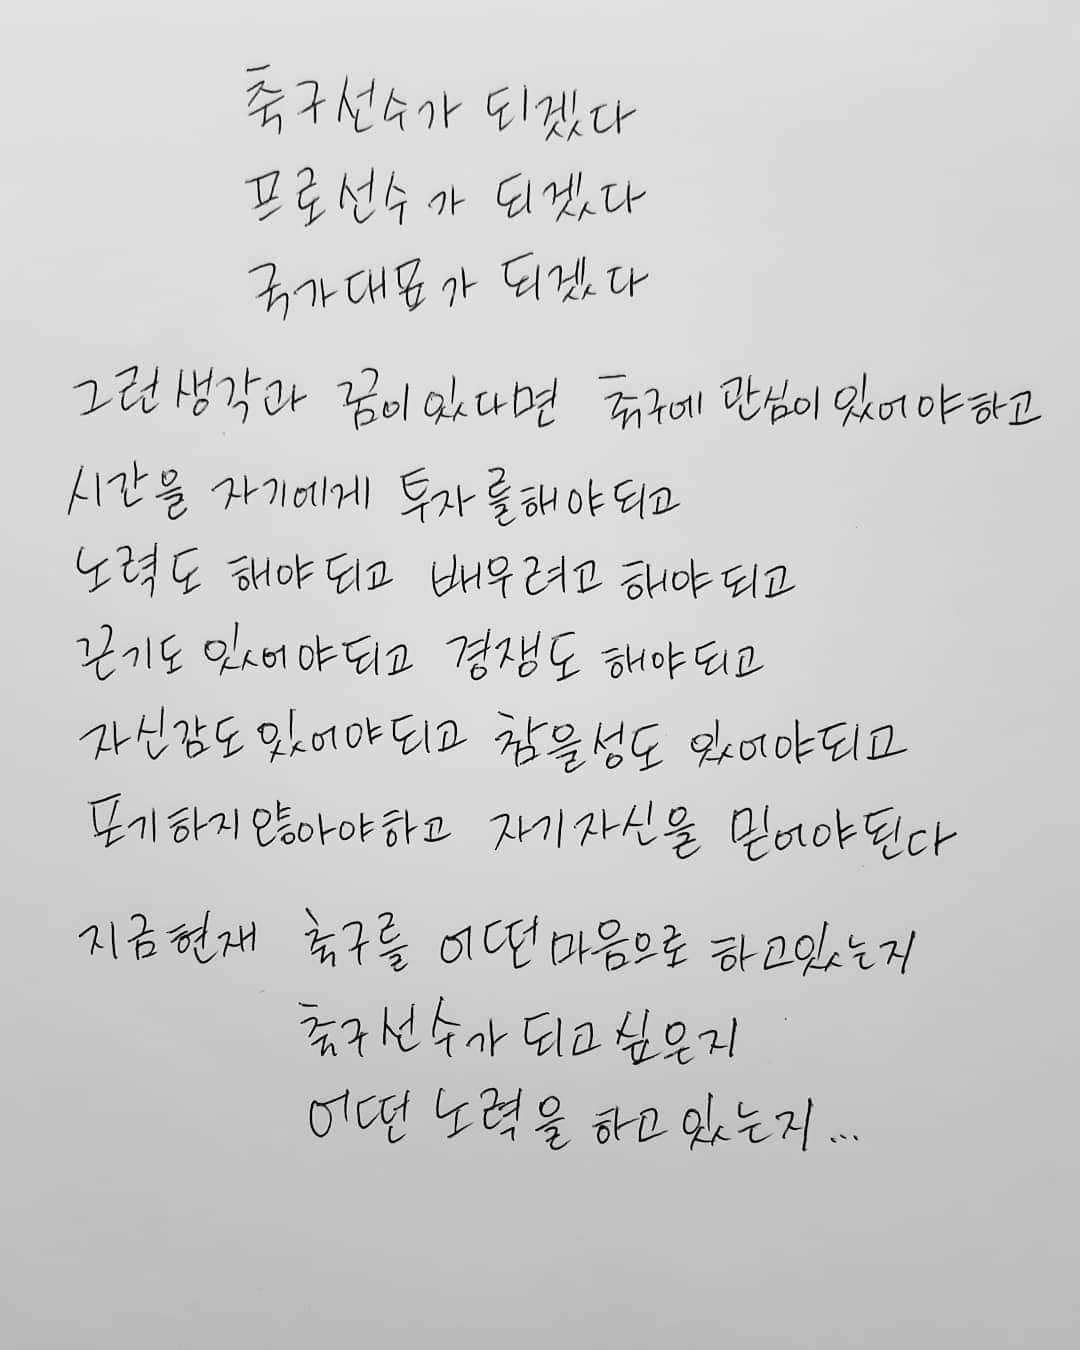 축구선수가 되겠다
프로선수가 되겠다
국가대표가 되겠다
그런생각과 꿈이있다면 축구에 관심이있어야하고
시간을 자기에게 투자를해야되고
노력도 해야되고 배우려고 해야되고
끈기도 있어야되고 경쟁도 해야되고
자신감도있어야되고 참을성도 있어야되고
포기하지않아야하고 자기자신을 믿어야된다
지금현재 축구를 어떤마음으로 하고있는지
축구선수가 되고싶은지
어떤 노력을 하고있는지...